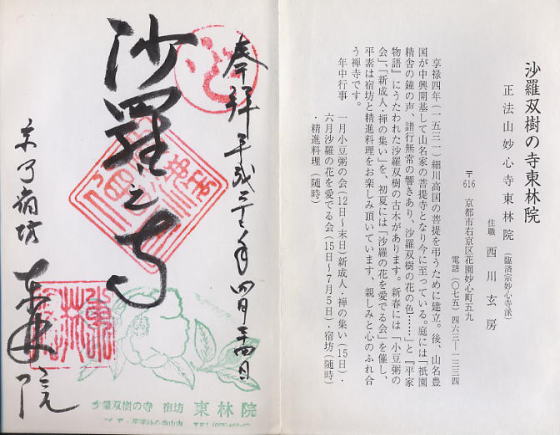 沙羅双樹の寺東林院
正法山妙心寺東林院（臨済宗妙心寺派）
住職 西川玄房
〒616 京都市右京区花園妙心町五九
電話（〇七五）四六三ー一三三四
享禄四年（一五三一）細川高国の菩提を弔うために建立。後、山名豊
国が中興開基して山名家の菩提寺となり今に至っている。庭には「祇園
精舎の鐘の声、諸行無常の響きあり、沙羅双樹の花の色……」と『平家
物語』にうたわれた沙羅双樹の古木があります。新春には「小豆粥の
会」、「新成人・禅の集い」を、初夏には「沙羅の花を愛でる会」を催し、
平素は宿坊と精進料理をお楽しみ頂いています。親しみと心のふれ合
う禅寺です。
年中行事
一月小豆粥の会（12日〜末日）新成人・禅の集い（15日）・
六月沙羅の花を愛でる会（15日〜7月5日）・宿坊（随時）
・精進料理（随時）
奉拝 平成 年四月 四日
沙羅之寺
京乃宿坊 東林院
沙羅双樹の寺 宿坊 東林院